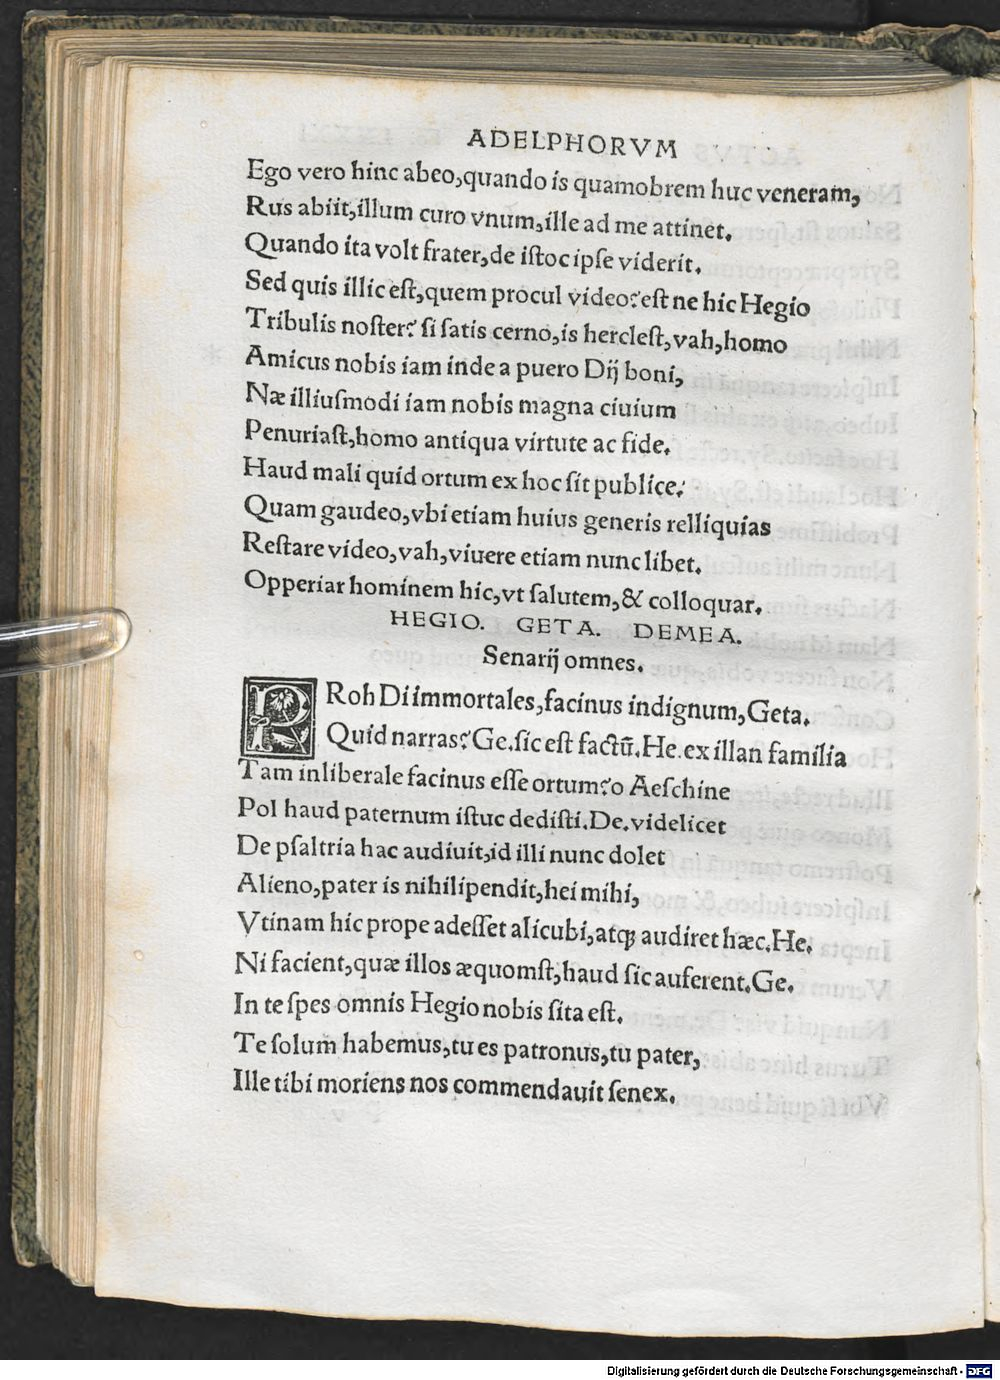 ADELPHORVM
Ego vero hinc abeo,quando is quamobrem huc veneram,
Rus abiit,illum curo vnum,ille ad me attinet.
Quando ita volt frater,de iſtoc ipſe viderit.
Sed quis illic eſt,quem procul video? eſt ne hic Hegio
Tribulis noſter? ſi ſatis cerno,is hercleſt,vah,homo
Amicus nobis iam inde a puero Dij boni,
Næ illiuſmodi iam nobis magna ciuium
Penuriaſt,homo antiqua virtute ac fide.
Haud mali quid ortum ex hoc ſit publice?
Quam gaudeo,vbi etiam huius generis relliquias
Reſtare video,vah,viuere etiam nunc libet.
Opperiar hominem hic,vt ſalutem,& colloquar.
HEGIO. GETA. DEMEA.
Senarij omnes.
PRoh Di immortales,facinus indignum,Geta.
Quid narras? Ge.ſic eſt factū.He.ex illan familia
Tam inliberale facinus eſſe ortum? o Aeſchine
Pol haud paternum iſtuc dediſti.De.videlicet
De pſaltria hac audiuit,id illi nunc dolet
Alieno,pater is nihilipendit,hei mihi,
Vtinam hic prope adeſſet alicubi,atq; audiret hæc.He.
Ni facient,quæ illos æquomſt,haud ſic auferent.Ge.
In te ſpes omnis Hegio nobis ſita eſt.
Te ſolum habemus,tu es patronus,tu pater,
Ille tibi moriens nos commendauit ſenex.
Digitalisierung gefördert durch die Deutsche Forschungsgemeinschaft - DFG